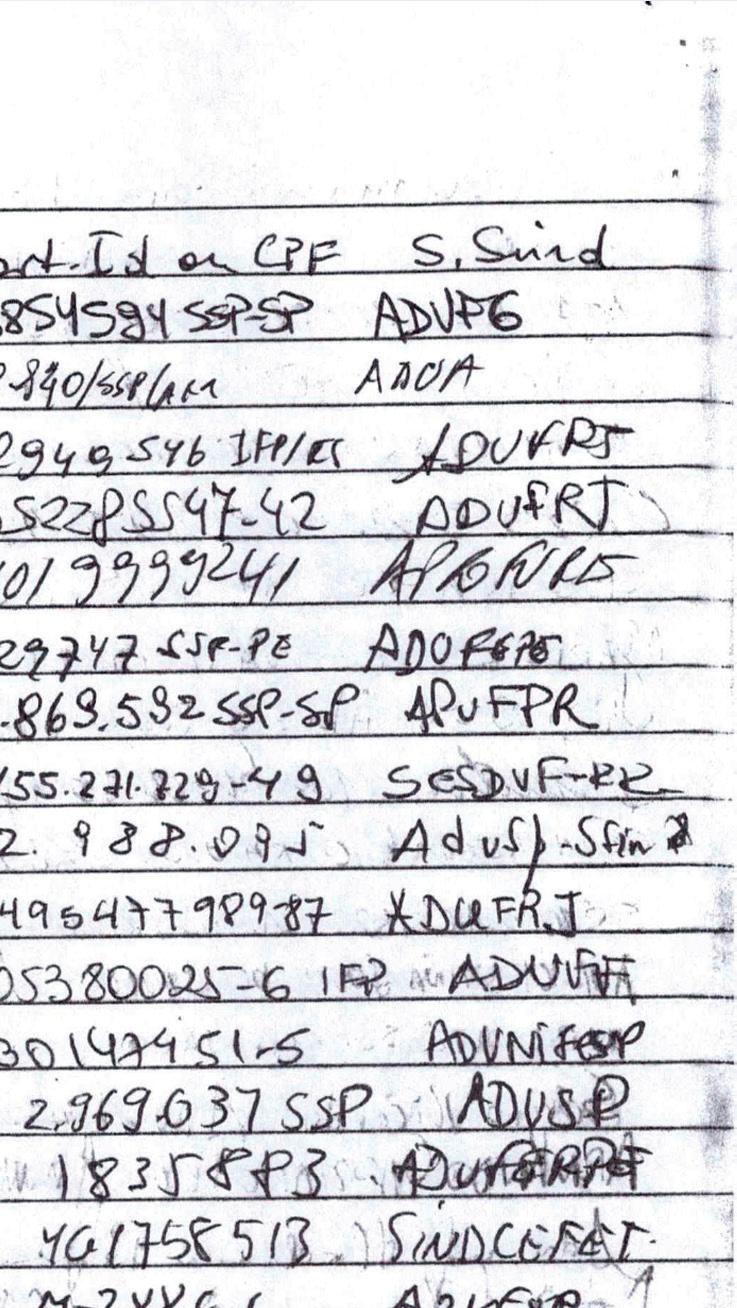 art. Id ou CPF S. Sind
8545594 SSP-SP ADUFG
840/SSP/AM ADUA
2949546 IFP/RJ ADUFRJ
522855547-42 ADUFRJ
019999241 APGFURG
29747 SSP-PE
.869.592 SSP-SP APUFPR
155.271.729-49 SESDUF-RR
2. 988.095 Adusp-SSind
49547798987 ADUFRJ
05380025-6 IFP ADUFF
30147451-5 ADUNIFESP
2.969.037 SSP ADUSP
18358883 ADUFERPE
461758513 SINDCEFET